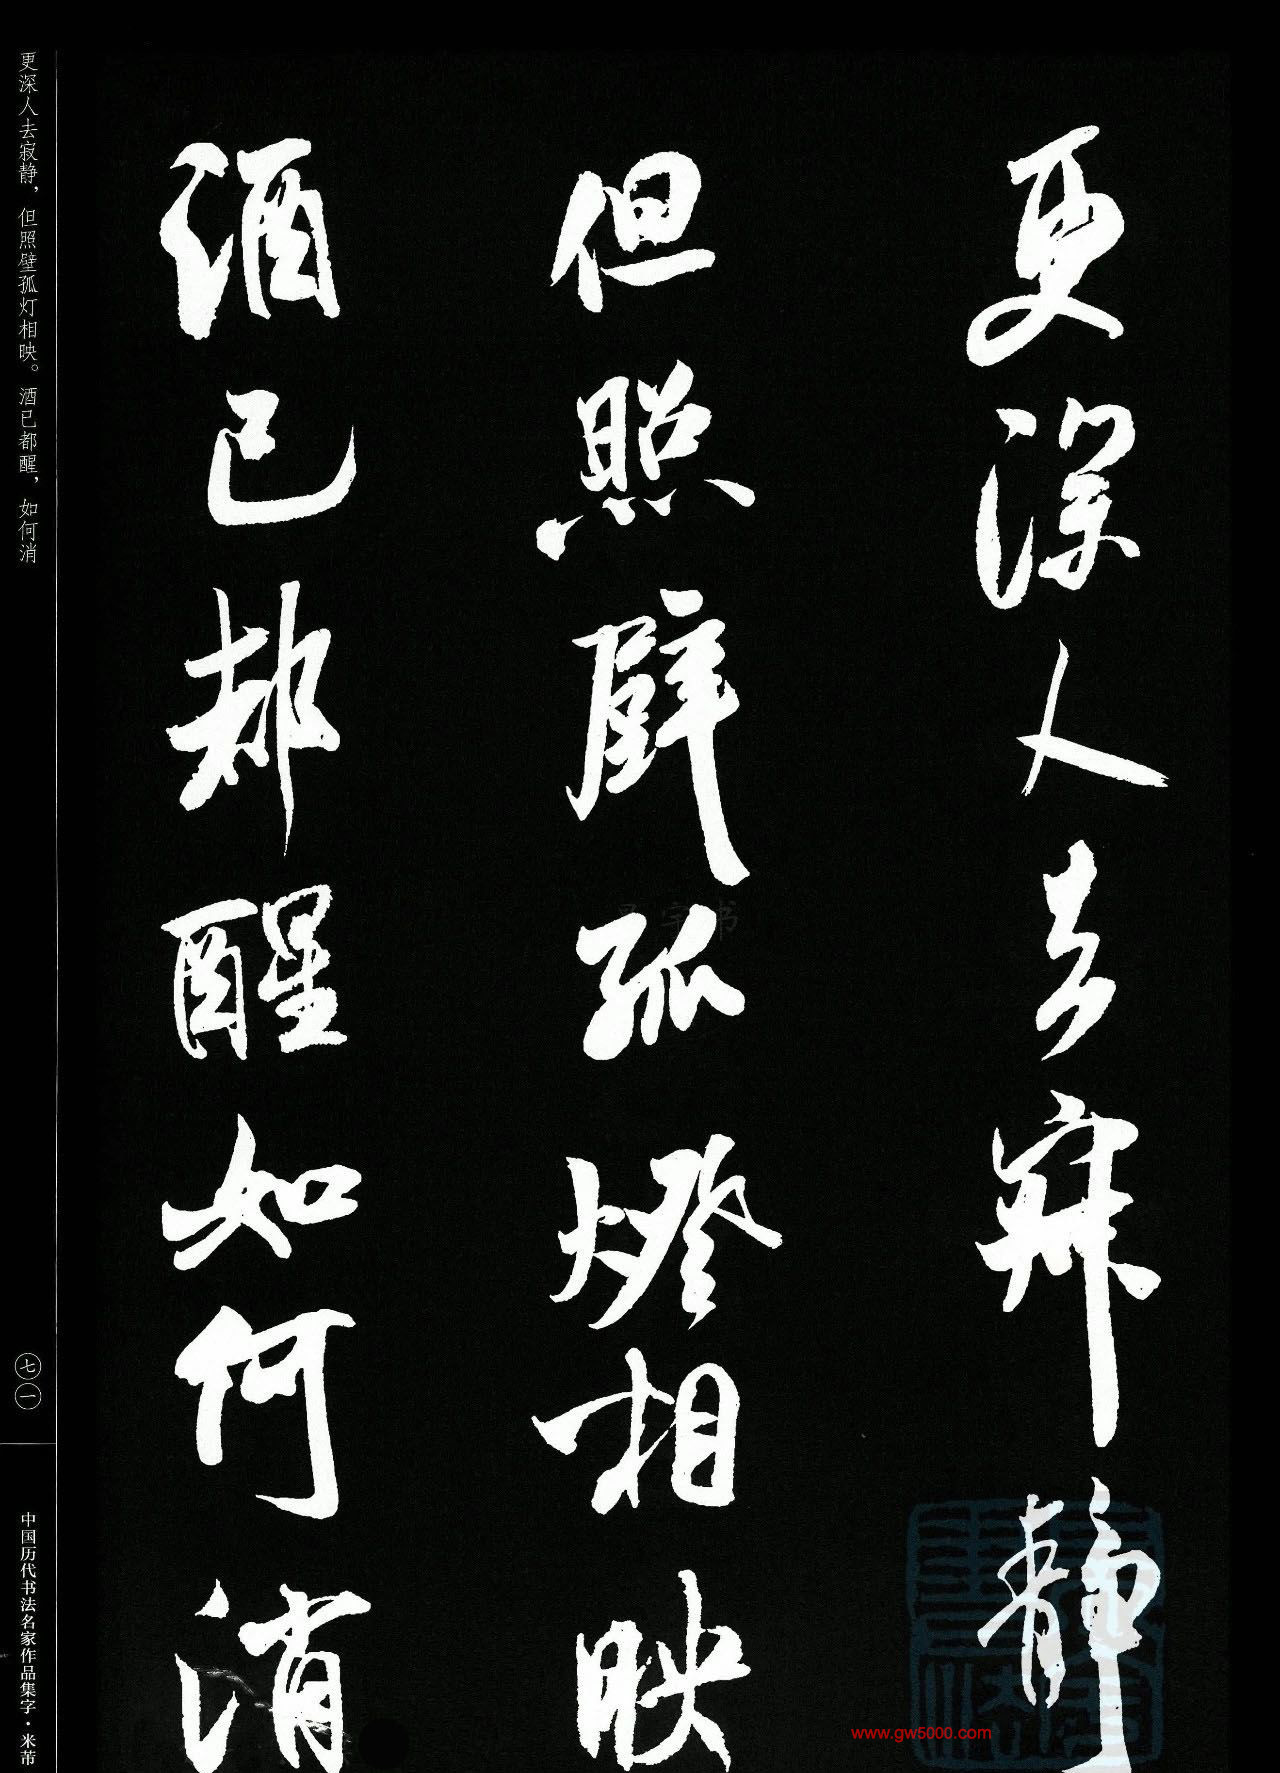 更深人去寂静
但照壁孤燈相映
酒已都醒如何消
更深人去寂静，但照壁孤灯相映。酒已都醒，如何消
七一
中国历代书法名家作品集字·米芾
www.gw5000.com